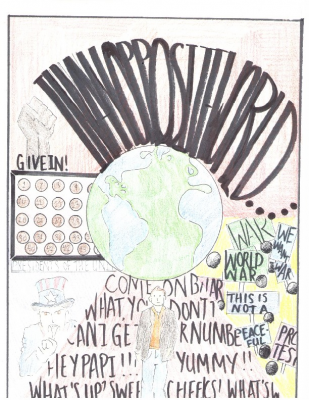 IN AN OPPOSIT WORLD
GIVE IN!
WAR
WE
WANT
WAR
WORLD
WAR
THIS IS
NOT A
PEACE
FUL
PRO
TEST
COME ON
WHAT YOU DON'T?
CAN I GET R NUMBE
HEY PAPI!!! YUMMY!!
WHAT'S UP? SWEE CHEEKS! WHAT'S